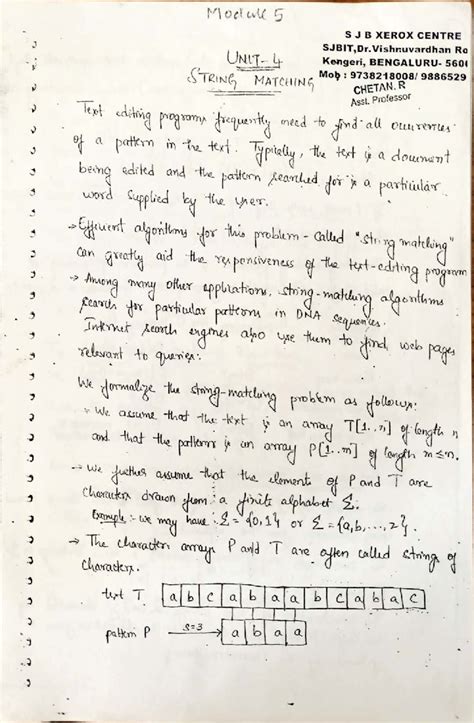 Module 5
S J B XEROX CENTRE
SJBIT, Dr. Vishnuvardhan Ro
Kengeri, BENGALURU- 560
Mob : 9738218008/ 9886529
CHETAN. R
Asst. Professor
UNIT-4
STRING MATCHING
Text editing programs frequently need to find all occurrences
of a pattern in the text. Typically, the text is a document
being edited and the pattern searched for is a particular
word supplied by the user.
→ Efficient algorithms for this problem - called "string matching"
can greatly aid the responsiveness of the text-editing program
→ Among many other applications, string-matching algorithms
search for particular patterns in DNA sequences.
Internet search engines also use them to find web pages
relevant to queries.
We formalize the string-matching problem as follows:
- We assume that the text is an array T[1..n] of length n
and that the pattern is an array P[1..m] of length m≤n.
→ We further assume that the elements of P and T are
characters drawn from a finite alphabet Σ.
Example :- we may have Σ = {0,1} or Σ = {a,b,...,z}.
→ The character arrays P and T are often called string of
characters.
text T a b c a b a a b c a b a c
pattern P s=3 a b a a